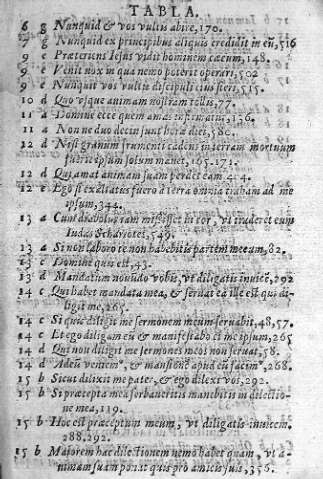 TABLA.
6 g Nunquid & vos vultis abire, 170.
7 g Nunquid ex principibus aliquis credidit in eũ, 516
9 a Præteriens Iesus vidit hominem cæcum, 148.
9 a Venit nox in qua nemo poterit operari, 502
9 e Nunquit vos vultis discipuli eius fieri, 515.
10 d Quo vsque animam nostram tollis, 77.
11 a Domine ecce quem amas infirmatur, 136.
11 a Non ne duo decim sunt horæ diei, 580.
12 d Nisi granum frumenti cadens in terram mortuum
fuerit ipsum solum manet, 165. 171.
12 d Qui amat animam suam perdet eam
12 e Ego si exaltatus fuero à terra omnia traham ad me
ipsum, 344.
13 a Cum diabolus iam misisset in cor, vt traderet eum
Iudas Schariotes, 549.
13 a Si non lavero te non habebitis partem mecum, 82.
13 c Domine quis est, 43.
13 d Mandatum nouũ do vobis, vt diligatis inuicẽ, 292
14 c Qui habet mandata mea, & seruat ea ille est qui di-
ligit me, 265.
14 c Si quis diligit me sermonem meum seruabit, 48, 57.
14 c Et ego diligam eũ & manifestabo ei me ipsum, 265
14 d Qui non diligit me sermones meos non seruat, 58.
14 d Ad eũ veniem⁹, & mansionẽ apud eũ faciem⁹, 268.
15 b Sicut dilixit me pater, & ego dilexi vos, 292.
15 b Si præcepta mea serbaueritis manebitis in dilectio-
ne mea, 119.
15 b Hoc est præceptum meum, vt diligatis inuicem.
288. 292.
15 b Maiorem hac dilectionem nemo habet quam, vt a-
nimam suam ponat quis pro amicis suis, 356.